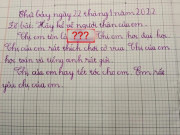 Thứ bảy ngày 22 tháng 1 năm 2022
Đề bài: Hãy kể về người thân của em.
Thị em tên là ??? Thị em học đại học.
Thị của em rất thích chơi cờ vua. Thị của em
học toán và tiếng anh rất giỏi.
Thị của em hay tết tóc cho em. Em rất
yêu chị của em.